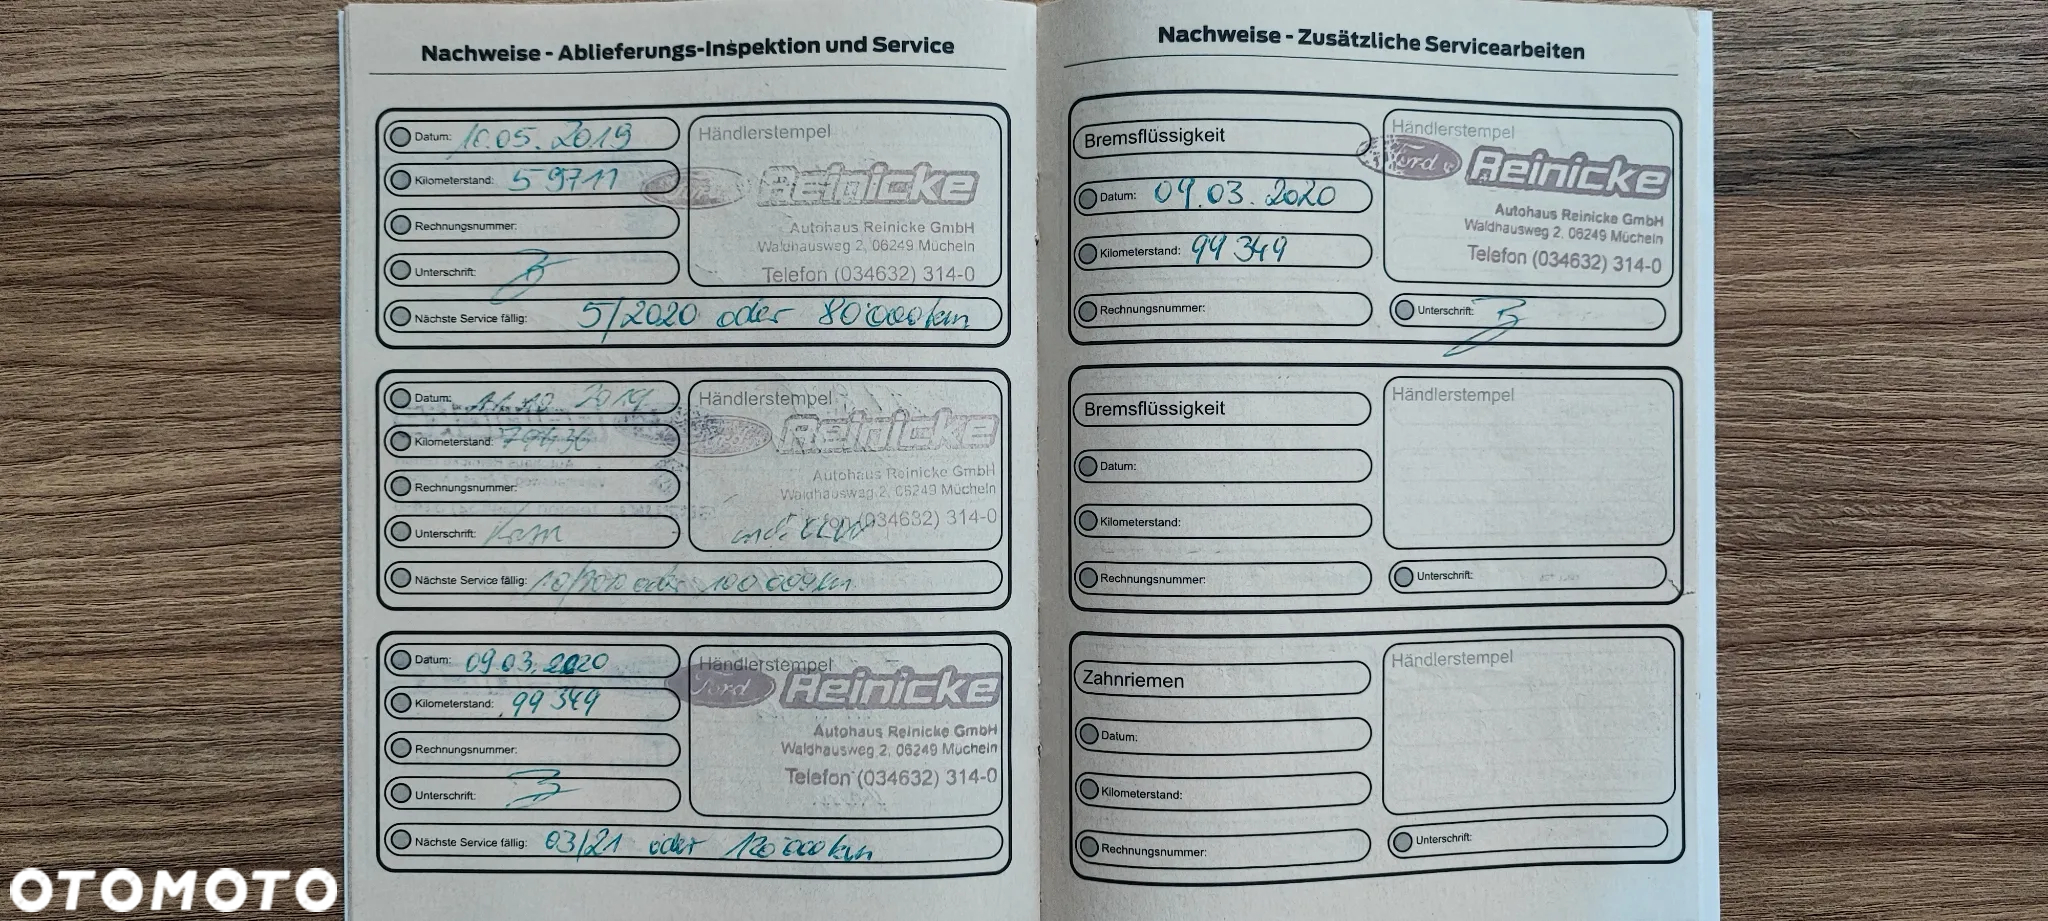 Nachweise - Ablieferungs-Inspektion und Service
Datum: 10.05.2019
Kilometerstand: 59711
Rechnungsnummer:
Unterschrift:
Nächste Service fällig: 5/2020 oder 80000km
Händlerstempel
Ford Reinicke
Autohaus Reinicke GmbH
Waldhausweg 2, 06249 Mücheln
Telefon (034632) 314-0
Datum: 2019
Kilometerstand:
Rechnungsnummer:
Unterschrift:
Nächste Service fällig: oder 100 000km
Händlerstempel
Ford Reinicke
Autohaus Reinicke GmbH
Waldhausweg 2, 06249 Mücheln
(034632) 314-0
Datum: 09.03.2020
Kilometerstand: 99 349
Rechnungsnummer:
Unterschrift:
Nächste Service fällig: 03/21 oder 120000km
Händlerstempel
Ford Reinicke
Autohaus Reinicke GmbH
Waldhausweg 2, 06249 Mücheln
Telefon (034632) 314-0
Nachweise - Zusätzliche Servicearbeiten
Bremsflüssigkeit
Datum: 09.03.2020
Kilometerstand: 99 349
Rechnungsnummer:
Händlerstempel
Ford Reinicke
Autohaus Reinicke GmbH
Waldhausweg 2, 06249 Mücheln
Telefon (034632) 314-0
Unterschrift:
Bremsflüssigkeit
Datum:
Kilometerstand:
Rechnungsnummer:
Händlerstempel
Unterschrift:
Zahnriemen
Datum:
Kilometerstand:
Rechnungsnummer:
Händlerstempel
Unterschrift:
OTOMOTO